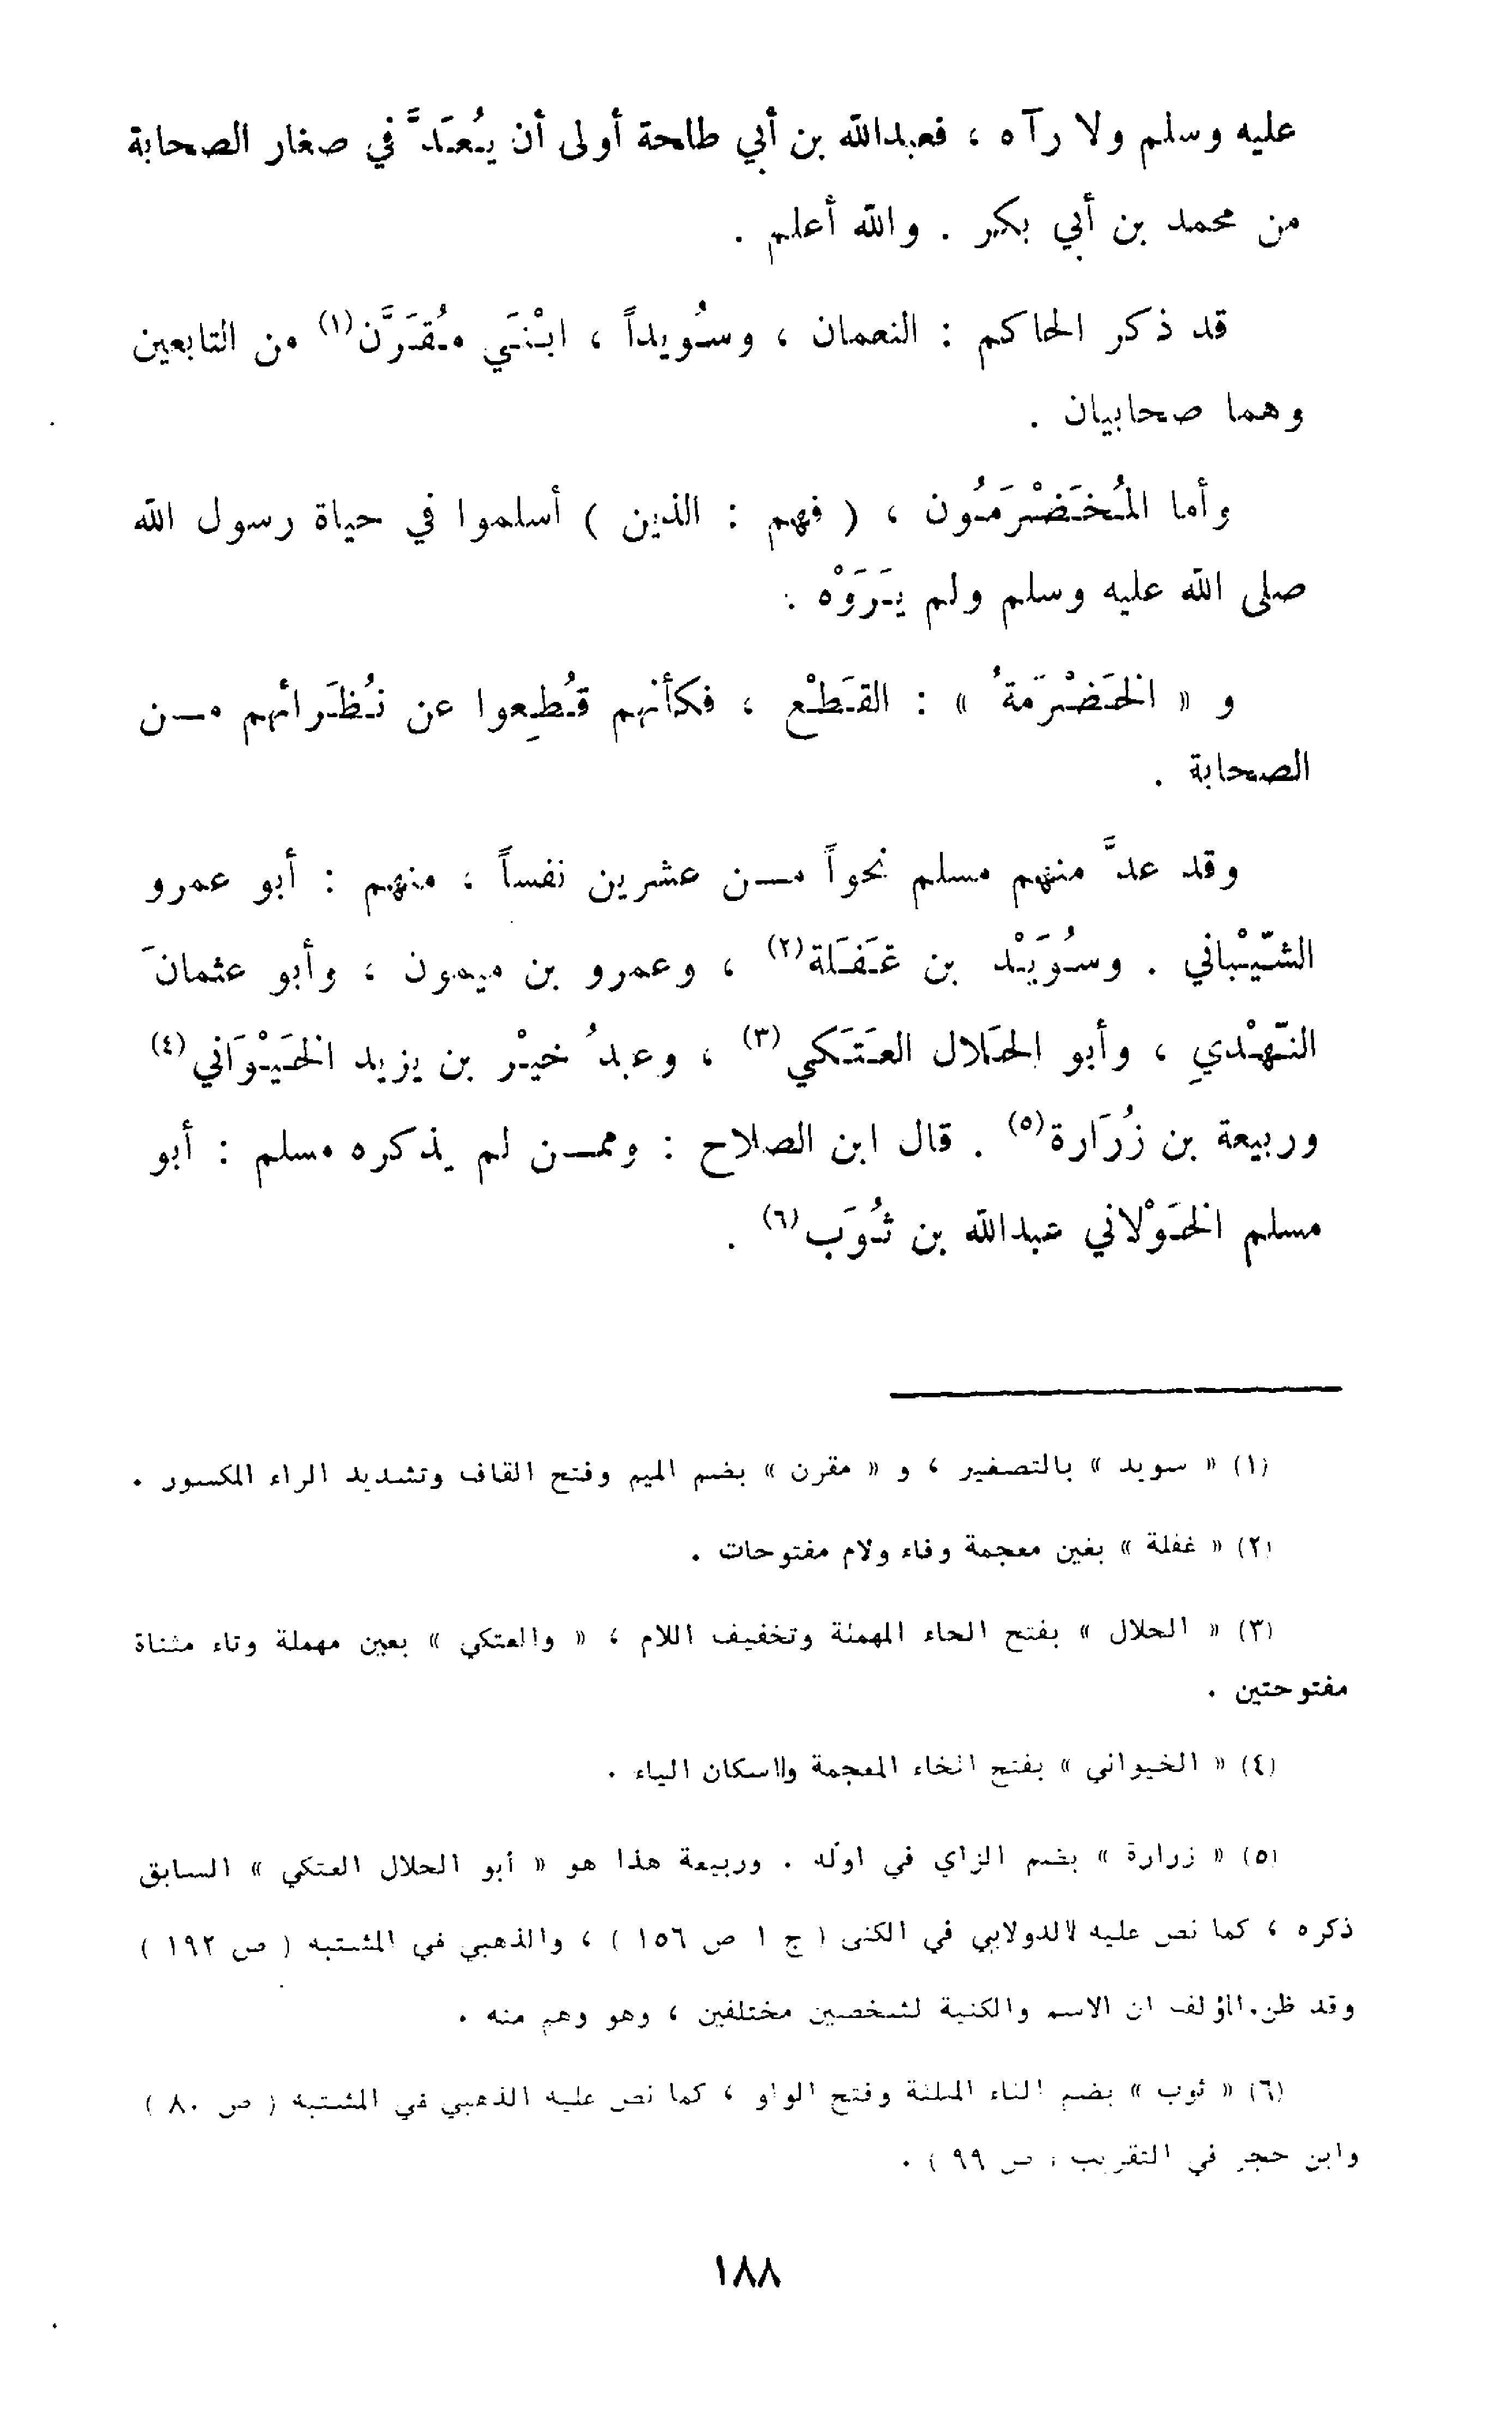 عليه وسلم ولا رآه ، فعبدالله بن أبي طلحة أولى أن يُعَدَّ في صغار الصحابة
من محمد بن أبي بكر . والله أعلم .
قد ذكر الحاكم : النعمان ، وسُويداً ، ابْنَي مُقَرَّن(١) من التابعين
وهما صحابيان .
وأما المُخَضْرَمُون ، ( فهم : الذين ) أسلموا في حياة رسول الله
صلى الله عليه وسلم ولم يَرَوْه .
و « الخَضْرَمَةُ » : القَطْع ، فكأنهم قُطِعوا عن نُظَرائهم من
الصحابة .
وقد عدَّ منهم مسلم نحواً من عشرين نفساً ، منهم : أبو عمرو
الشّيْباني . وسُوَيْد بن غَفَلة(٢) ، وعمرو بن ميمون ، وأبو عثمانَ
النّهْدي ، وأبو الحَلال العَتَكي(٣) ، وعبدُ خيْر بن يزيد الخَيْوَاني(٤)
وربيعة بن زُرَارة(٥) . قال ابن الصلاح : وممن لم يذكره مسلم : أبو
مسلم الخَوْلاني عبدالله بن ثُوَب(٦) .
(١) « سويد » بالتصغير ، و « مقرن » بضم الميم وفتح القاف وتشديد الراء المكسور .
(٢) « غفلة » بغين معجمة وفاء ولام مفتوحات .
(٣) « الحلال » بفتح الحاء المهملة وتخفيف اللام ، « والعتكي » بعين مهملة وتاء مثناة
مفتوحتين .
(٤) « الخيواني » بفتح الخاء المعجمة واسكان الياء .
(٥) « زرارة » بضم الزاي في اوله . وربيعة هذا هو « أبو الحلال العتكي » السابق
ذكره ، كما نص عليه الدولابي في الكنى ( ج ١ ص ١٥٦ ) ، والذهبي في المشتبه ( ص ١٩٢ )
وقد ظن المؤلف ان الاسم والكنية لشخصين مختلفين ، وهو وهم منه .
(٦) « ثوب » بضم الثاء المثلثة وفتح الواو ، كما نص عليه الذهبي في المشتبه ( ص ٨٠ )
وابن حجر في التقريب ( ص ٩٩ ) .
١٨٨